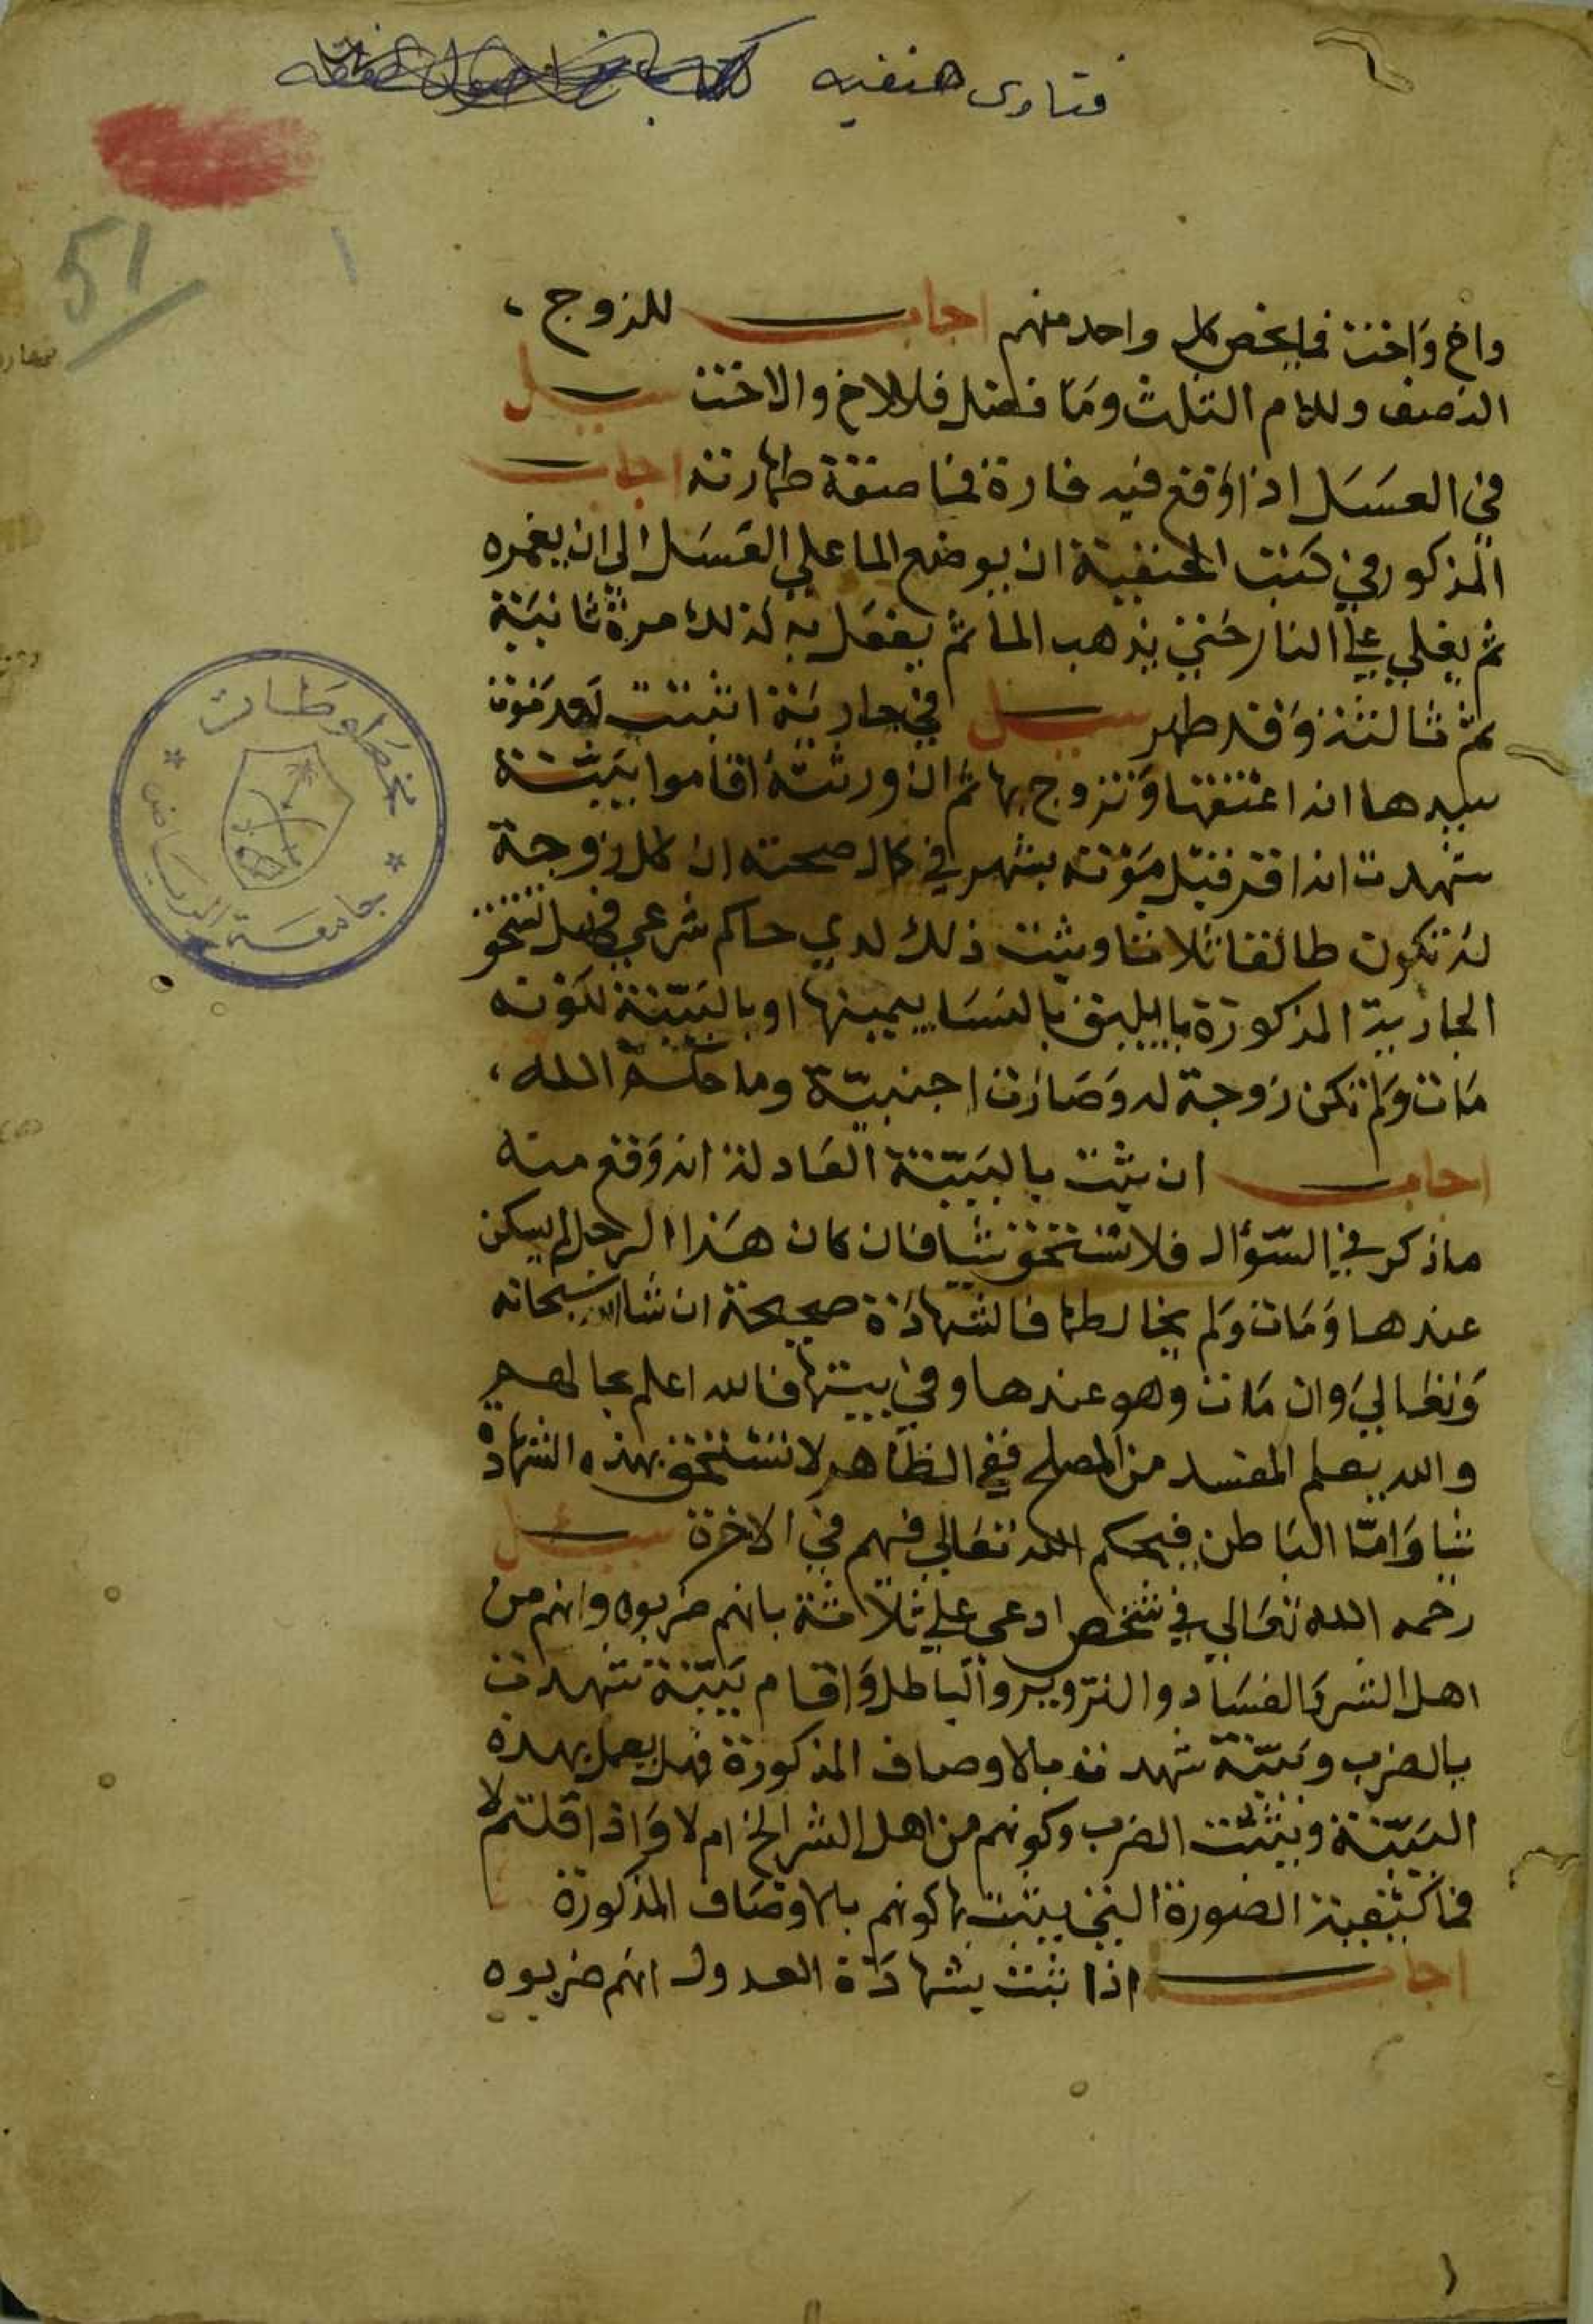 فتاوى حنفيه
51
١
واخ واخت فما يخص كل واحد منهم اجاب للزوج ،
النصف وللام الثلث وما فضل فللاخ والاخت سيل
في العسل اذا وقع فيه فارة فما صفة طهارته اجاب
المذكور في كتب الحنفية ان يوضع الما علي العسل الي ان يغمره
ثم يغلي علي النار حتي يذهب الما ثم يفعل به كذلك مرة ثانية
ثم ثالثة وقد طهر سيل في جارية اثبتت بعد موت
سيدها انه اعتقها وتزوج بها ثم ان ورثته اقاموا بينة
شهدت انه اقر قبل موته بشهر في كمال صحته ان كل زوجة
له تكون طالقا ثلاثا ويثبت ذلك لدي حاكم شرعي فهل تستحق
الجارية المذكورة بيمينها او بالبينة لكونه
مات ولم تكن زوجة له وصارت اجنبية وما حكم الله ،
اجاب ان ثبت بالبينة العادلة انه وقع منه
ما ذكر في السؤال فلا تستحق شيا فان كان هذا الرجل لم يكن
عندها ومات ولم يخالطها فالشهادة صحيحة ان شا الله سبحانه
وتعالي وان مات وهو عندها وفي بيتها فالله اعلم بحالهم
والله يعلم المفسد من المصلح ففي الظاهر لا تستحق بهذه الشهادة
شيا واما الباطن فيحكم الله تعالي فيهم في الاخرة سيل
رحمه الله تعالي في شخص ادعي علي ثلاثة بانهم ضربوه وانهم من
اهل الشر والفساد والتزوير والباطل واقام بينة شهدت
بالضرب وبينة شهدت بالاوصاف المذكورة فهل يعمل بهذه
البينة ويثبت الضرب وكونهم من اهل الشر الخ ام لا واذا قلتم لا
فما كيفية الصورة التي يثبت بها كونهم بالاوصاف المذكورة
اجاب اذا ثبت بشهادة العدول انهم ضربوه
مخطوطات
جامعة الرياض
١